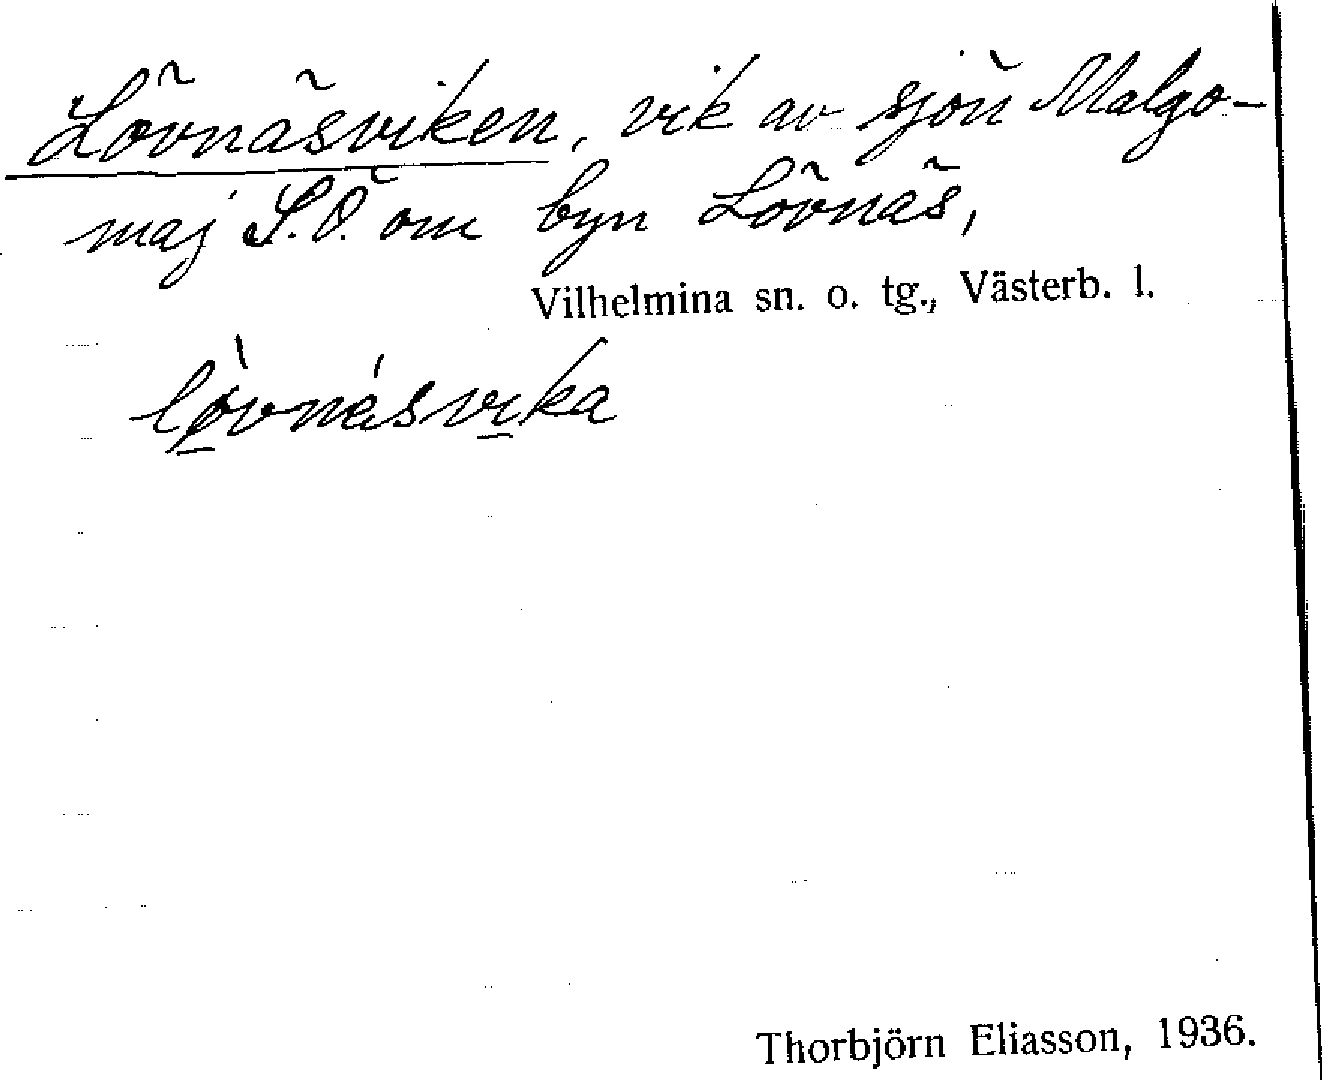 Lövnäsviken, vik av sjön Malgo-
maj S.Ö. om byn Lövnäs,
Vilhelmina sn. o. tg., Västerb. l.
lø̱̀vnésvi̱ka
Thorbjörn Eliasson, 1936.